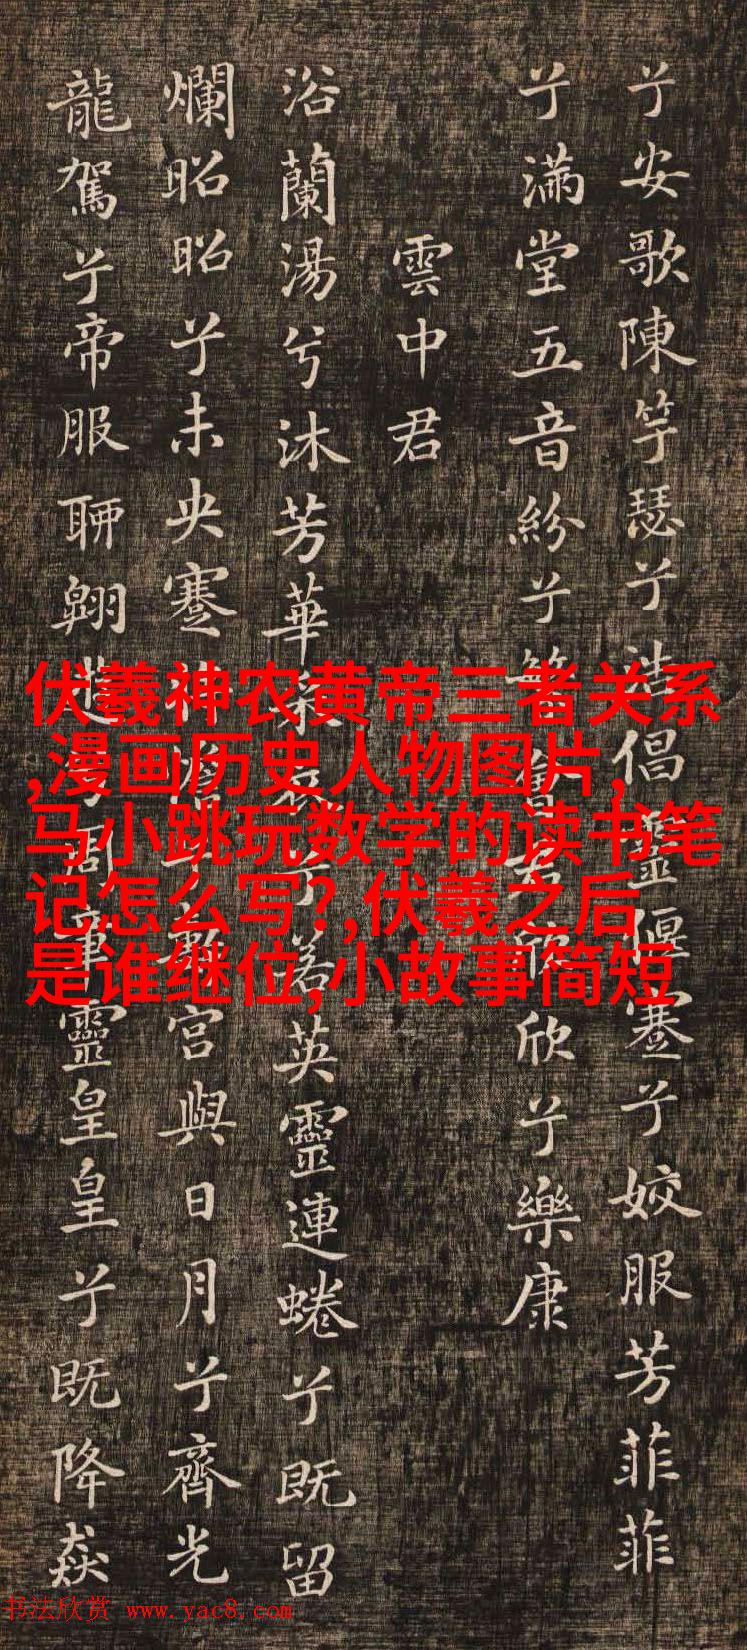 兮安歌陳竽瑟兮浩倡靈偃蹇兮姣服芳菲菲
兮滿堂五音紛兮繁會君欣欣兮樂康
雲中君
浴蘭湯兮沐芳華采衣兮若英靈連蜷兮既留
爛昭昭兮未央蹇將憺兮壽宮與日月兮齊光
龍駕兮帝服聊翱遊兮周章靈皇皇兮既降猋
伏羲神农黄帝三者关系
,漫画历史人物图片,
马小跳玩数学的读书笔
记怎么写?,伏羲之后
是谁继位,小故事简短
书法欣赏 www.yac8.com